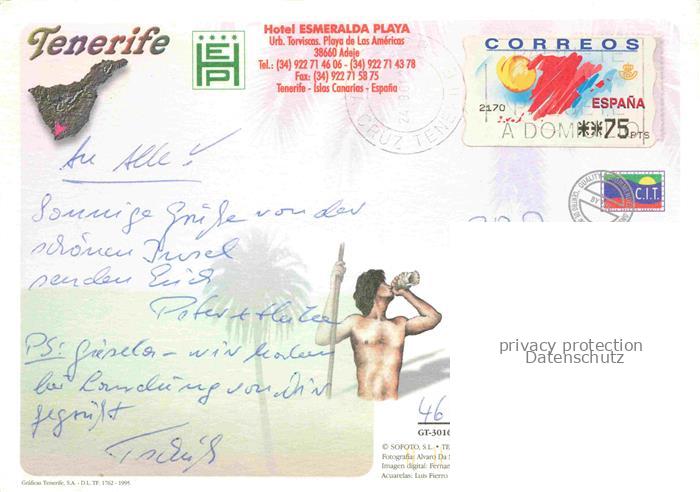 Tenerife
HEP
Hotel ESMERALDA PLAYA
Urb. Torviscas. Playa de Las Américas
38660 Adeje
Tel.: (34) 922 71 46 06 - (34) 922 71 43 78
Fax: (34) 922 71 58 75
Tenerife - Islas Canarias - España
CORREOS
2170
ESPAÑA
A DOMICILIO
**75 PTS
CRUZ TENE
C.I.T.
QUALITY
BY
An Alle!
Sonnige Grüße von der
schönen Insel
senden Euch
Peter +
PS: Gisela - wir haben
bei Landung von Dir
gegrüßt
Tschüß
privacy protection
Datenschutz
46
GT-3016
© SOFOTO, S.L. • TE
Fotografía: Alvaro Da
Imagen digital: Fernan
Acuarelas: Luis Fierro
Gráficas Tenerife, S.A. - D.L. TF. 1762 - 1995